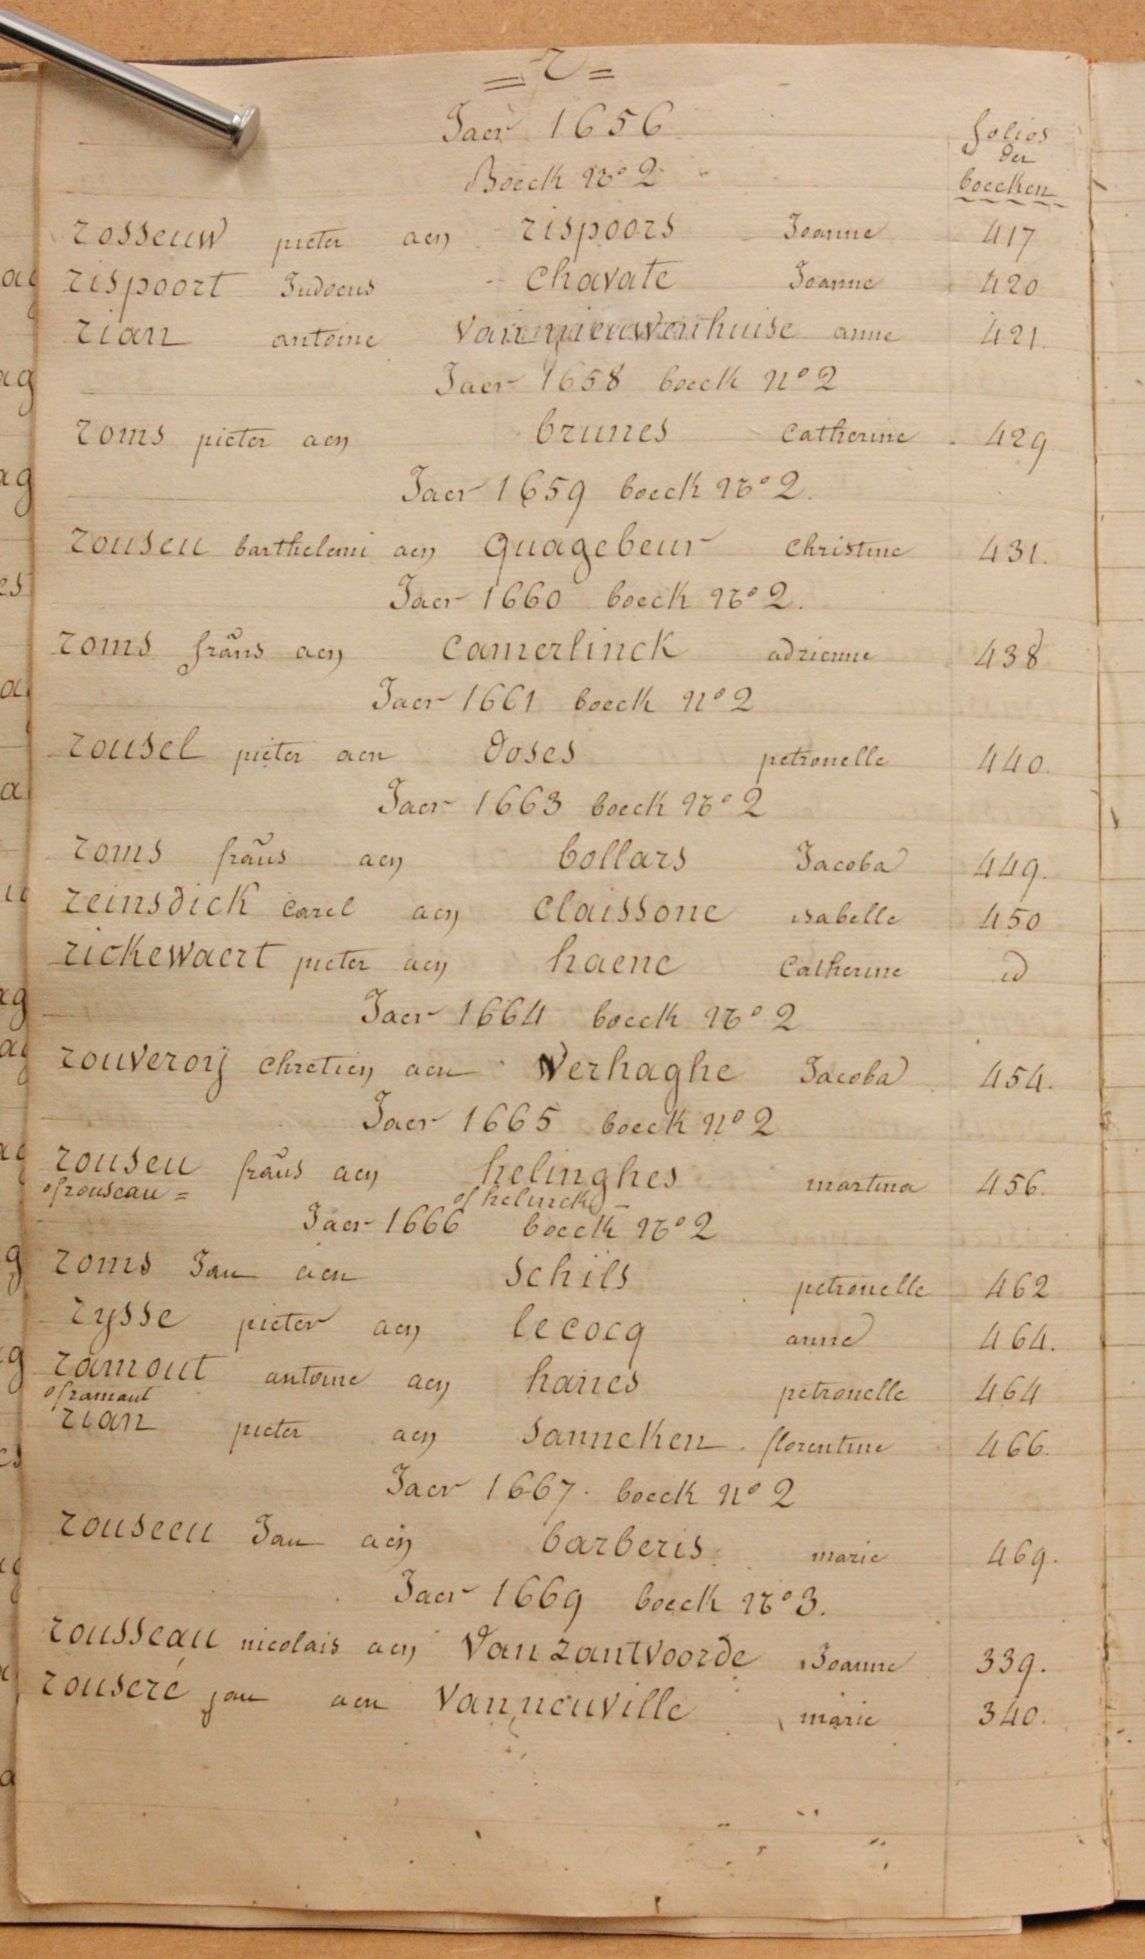 = r =
Jaer 1656
folios
der
boecken
Boeck No 2
rosseuw pieter aen rispoors Joanne 417
rispoort Judocus - chavate Joanne 420
rian antoine anne 421.
Jaer 1658 boeck No 2
roms pieter aen brunes catherine 429
Jaer 1659 boeck No 2.
rouseu barthelemi aen quagebeur christine 431.
Jaer 1660 boeck No 2.
roms frans aen camerlinck adrienne 438
Jaer 1661 boeck No 2
rousel pieter aen doses petronelle 440.
Jaer 1663 boeck No 2
roms frans aen bollars Jacoba 449.
reinsdick carel aen claissone isabelle 450
rickewaert pieter aen haene Catherine id
Jaer 1664 boeck No 2
rouveroij chretien aen Verhaghe Jacoba 454.
Jaer 1665 boeck No 2
rouseu frans aen helinghes martina 456.
of rouseau = of helinck
Jaer 1666 boeck No 2
roms Jan aen schils petronelle 462
rysse pieter aen lecocq anne 464.
ramout antoine aen hanes petronelle 464
of ramaut
rian pieter aen sanneken florentine 466.
Jaer 1667. boeck No 2
rouseeu Jan aen barberis marie 469.
Jaer 1669 boeck No 3.
rousseau nicolais aen Van zantvoorde Joanne 339.
rouseré jan aen Van neuville marie 340.